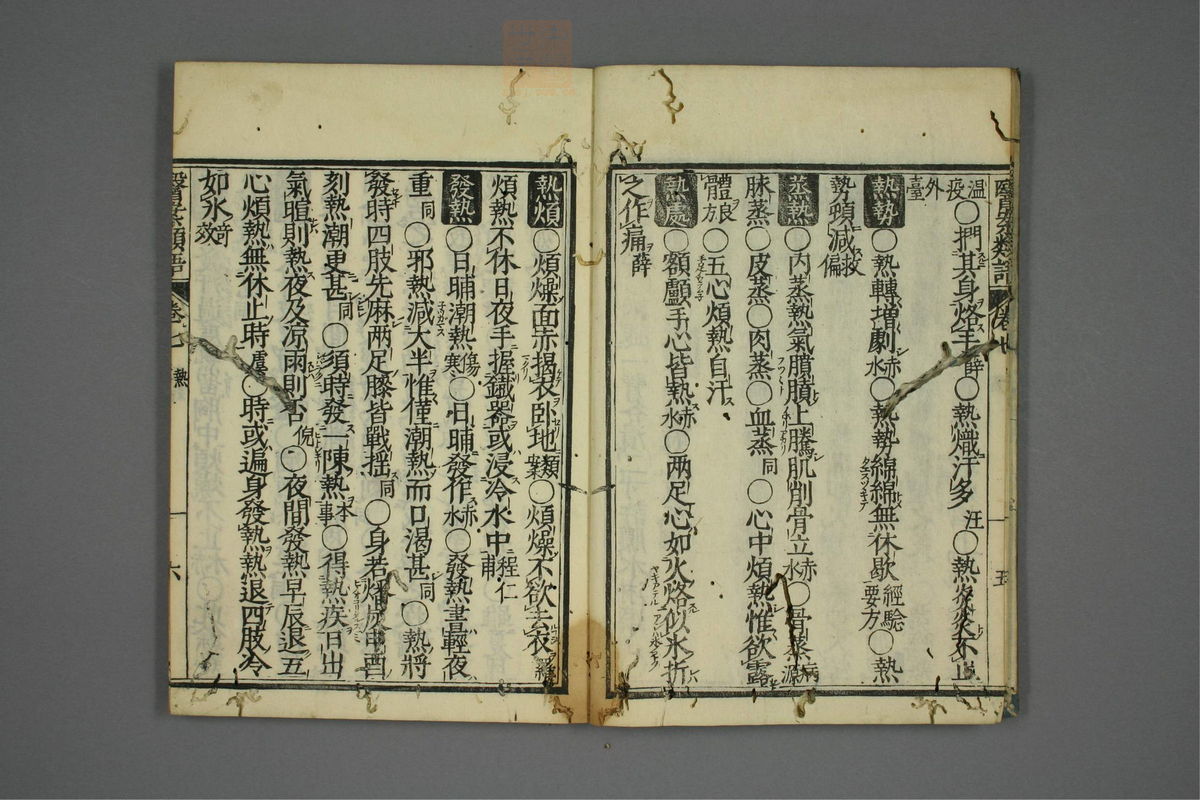 温疫○捫其身烙手薛○熱熾汗多汪○熱炎炎不止
外臺
熱勢○熱轉增劇赤水○熱勢綿綿無休歇經驗要方○熱
勢頓減撥偏
蒸熱○内蒸熱氣膹膹上騰肌削骨立赤水○骨蒸病源○
脉蒸○皮蒸○肉蒸○血蒸同○心中煩熱惟欲露
體良方○五心煩熱自汗
熱處○額顱手心皆熱赤水○两足心如火烙似氷折
之作痛薛
醫案類語 卷七 熱 六
熱煩○煩燥面赤揭衣卧地類案○煩燥不欲去衣羅
煩熱不休日夜手握鐵器或浸冷水中程仁甫
發熱○日晡潮熱傷寒○日晡發作赤水○發熱晝輕夜
重同○邪熱減大半惟僅潮熱而口渴甚同○熱將
發時四肢先麻两足膝皆戰揺同○身若燔炭申酉
刻熱潮更甚同○須時發一陳熱本事○得熱疾日出
氣暄則熱夜及涼雨則否倪○夜間發熱早辰退五
心煩熱無休止時虞○時或遍身發熱熱退四肢冷
如氷奇效